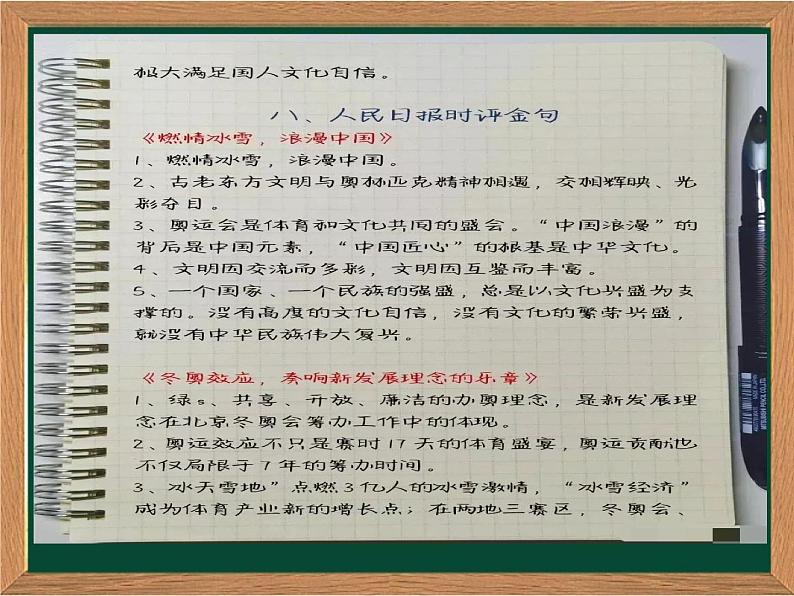 极大满足国人文化自信。
八、人民日报时评金句
《燃情冰雪，浪漫中国》
1、燃情冰雪，浪漫中国。
2、古老东方文明与奥林匹克精神相遇，交相辉映、光
彩夺目。
3、奥运会是体育和文化共同的盛会。“中国浪漫”的
背后是中国元素，“中国匠心”的根基是中华文化。
4、文明因交流而多彩，文明因互鉴而丰富。
5、一个国家、一个民族的强盛，总是以文化兴盛为支
撑的。没有高度的文化自信，没有文化的繁荣兴盛，
就没有中华民族伟大复兴。
《冬奥效应，奏响新发展理念的乐章》
1、绿s、共享、开放、廉洁的办奥理念，是新发展理
念在北京冬奥会筹办工作中的体现。
2、奥运效应不只是赛时17天的体育盛宴，奥运贡献也
不仅局限于7年的筹办时间。
3、冰天雪地”点燃3亿人的冰雪激情，“冰雪经济”
成为体育产业新的增长点；在两地三赛区，冬奥会、
MITSUBISHI PENCIL CO.,LTD